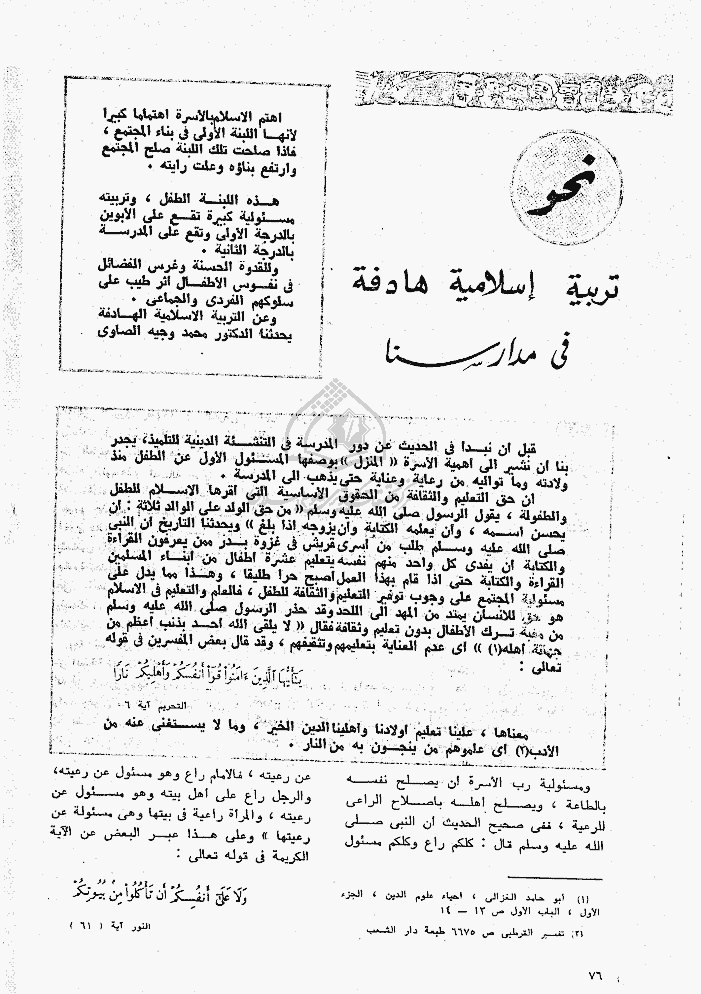 نحو
تربية إسلامية هادفة
في مدارسنا
اهتم الاسلام بالأسرة اهتماما كبيرا
لأنها اللبنة الأولى فى بناء المجتمع ،
فاذا صلحت تلك اللبنة صلح المجتمع
وارتفع بناؤه وعلت رايته .
هذه اللبنة الطفل ، وتربيته
مسئولية كبيرة تقع على الأبوين
بالدرجة الأولى وتقع على المدرسة
بالدرجة الثانية .
وللقدوة الحسنة وغرس الفضائل
فى نفوس الأطفال أثر طيب على
سلوكهم الفردى والجماعى .
وعن التربية الاسلامية الهادفة
يحدثنا الدكتور محمد وجيه الصاوى
قبل أن نبدأ فى الحديث عن دور المدرسة فى التنشئة الدينية للتلميذ، يجدر
بنا أن نشير الى أهمية الأسرة « المنزل » بوصفها المسئول الأول عن الطفل منذ
ولادته وما تواليه من رعاية وعناية حتى يذهب الى المدرسة .
ان حق التعليم والثقافة من الحقوق الأساسية التى أقرها الاسلام للطفل
والطفولة ، يقول الرسول صلى الله عليه وسلم « من حق الولد على الوالد ثلاثة : أن
يحسن اسمه ، وأن يعلمه الكتابة وأن يزوجه اذا بلغ » ويحدثنا التاريخ أن النبى
صلى الله عليه وسلم طلب من أسرى قريش فى غزوة بدر ممن يعرفون القراءة
والكتابة أن يفدى كل واحد منهم نفسه بتعليم عشرة أطفال من أبناء المسلمين
القراءة والكتابة حتى اذا قام بهذا العمل أصبح حرا طليقا ، وهذا مما يدل على
مسئولية المجتمع على وجوب توفير التعليم والثقافة للطفل ، فالعلم والتعليم فى الاسلام
هو حق للانسان يمتد من المهد الى اللحد وقد حذر الرسول صلى الله عليه وسلم
من مغبة ترك الأطفال بدون تعليم وثقافة فقال « لا يلقى الله أحد بذنب أعظم من
جهالة أهله(١) » أى عدم العناية بتعليمهم وتثقيفهم ، وقد قال بعض المفسرين فى قوله
تعالى :
يَٰٓأَيُّهَا الَّذِينَ ءَامَنُوا قُوٓا أَنفُسَكُمْ وَأَهْلِيكُمْ نَارًا
التحريم آية ٦
معناها ، علينا تعليم أولادنا وأهلينا الدين الخير ، وما لا يستغنى عنه من
الأدب(٢) أى علموهم من ينجون به من النار .
ومسئولية رب الأسرة أن يصلح نفسه
بالطاعة ، ويصلح أهله باصلاح الراعى
للرعية ، ففى صحيح الحديث أن النبى صلى
الله عليه وسلم قال : كلكم راع وكلكم مسئول
عن رعيته ، فالامام راع وهو مسئول عن رعيته،
والرجل راع على أهل بيته وهو مسئول عن
رعيته ، والمرأة راعية فى بيتها وهى مسئولة عن
رعيتها » وعلى هذا عبر البعض عن الآية
الكريمة فى قوله تعالى :
وَلَا عَلَىٰٓ أَنفُسِكُمْ أَن تَأْكُلُوا مِنْ بُيُوتِكُمْ
النور آية ( ٦١ )
(١) أبو حامد الغزالى ، احياء علوم الدين ، الجزء
الأول ، الباب الأول ص ١٣ – ١٤
(٢) تفسير القرطبى ص ٦٦٧٥ طبعة دار الشعب
٧٦